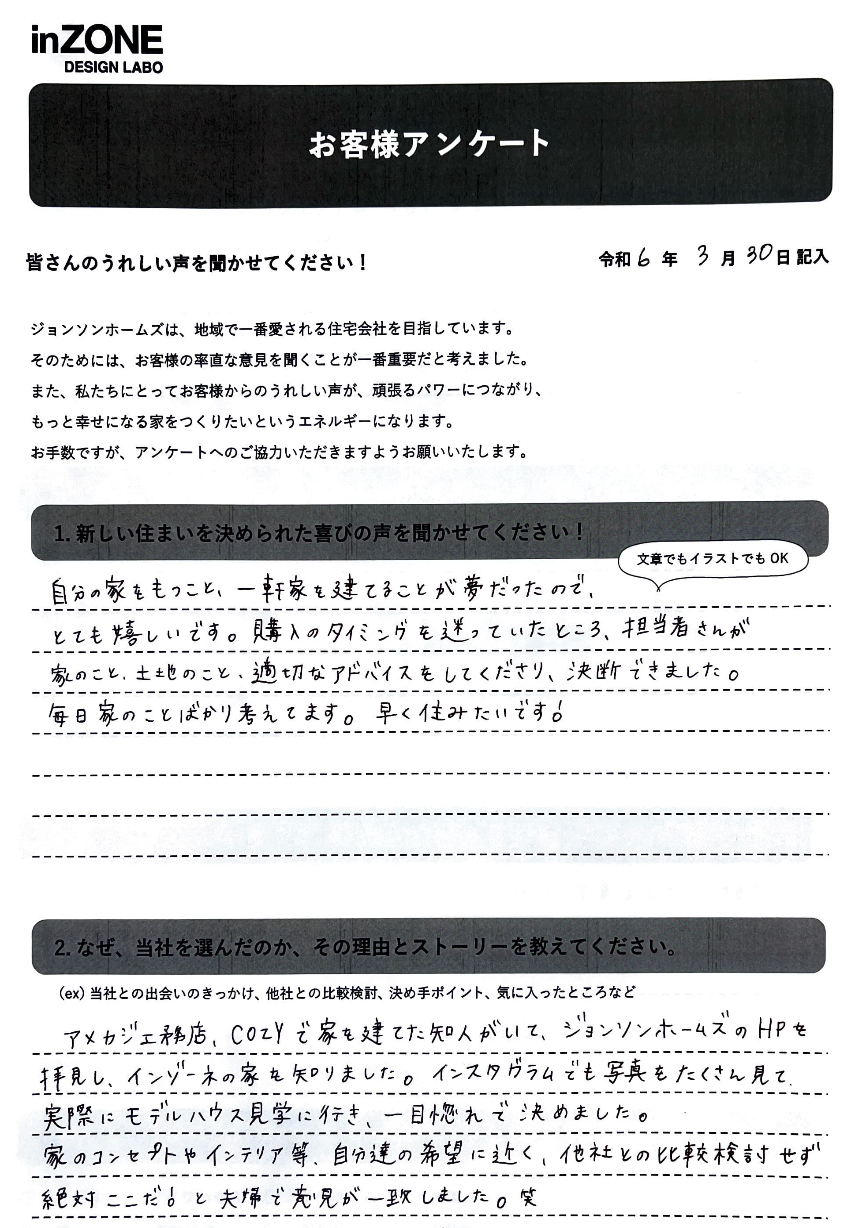 inZONE
DESIGN LABO
お客様アンケート
皆さんのうれしい声を聞かせてください！
令和6年 3月30日記入
ジョンソンホームズは、地域で一番愛される住宅会社を目指しています。
そのためには、お客様の率直な意見を聞くことが一番重要だと考えました。
また、私たちにとってお客様からのうれしい声が、頑張るパワーにつながり、
もっと幸せになる家をつくりたいというエネルギーになります。
お手数ですが、アンケートへのご協力いただきますようお願いいたします。
1. 新しい住まいを決められた喜びの声を聞かせてください！
文章でもイラストでもOK
自分の家をもつこと、一軒家を建てることが夢だったので、
とても嬉しいです。購入のタイミングを迷っていたところ、担当者さんが
家のこと、土地のこと、適切なアドバイスをしてくださり、決断できました。
毎日家のことばかり考えてます。早く住みたいです！
2. なぜ、当社を選んだのか、その理由とストーリーを教えてください。
（ex）当社との出会いのきっかけ、他社との比較検討、決め手ポイント、気に入ったところなど
アメカジ工務店、COZYで家を建てた知人がいて、ジョンソンホームズのHPを
拝見し、インゾーネの家を知りました。インスタグラムでも写真をたくさん見て、
実際にモデルハウス見学に行き、一目惚れで決めました。
家のコンセプトやインテリア等、自分達の希望に近く、他社との比較検討せず
絶対ここだ！と夫婦で意見が一致しました。笑